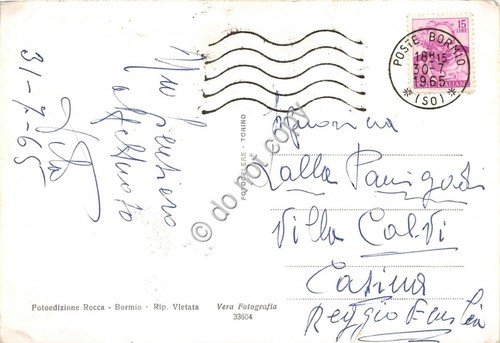 31-7-65
Un pensiero
affettuoso
15
LIRE
POSTE BORMIO
18H15
30-7
1965
* (SO) *
Signorina
Lalla
Villa Calvi
Casina
Reggio Emilia
FOTOCELERE - TORINO
© do not copy
Fotoedizione Rocca - Bormio - Rip. Vietata
Vera Fotografia
33604